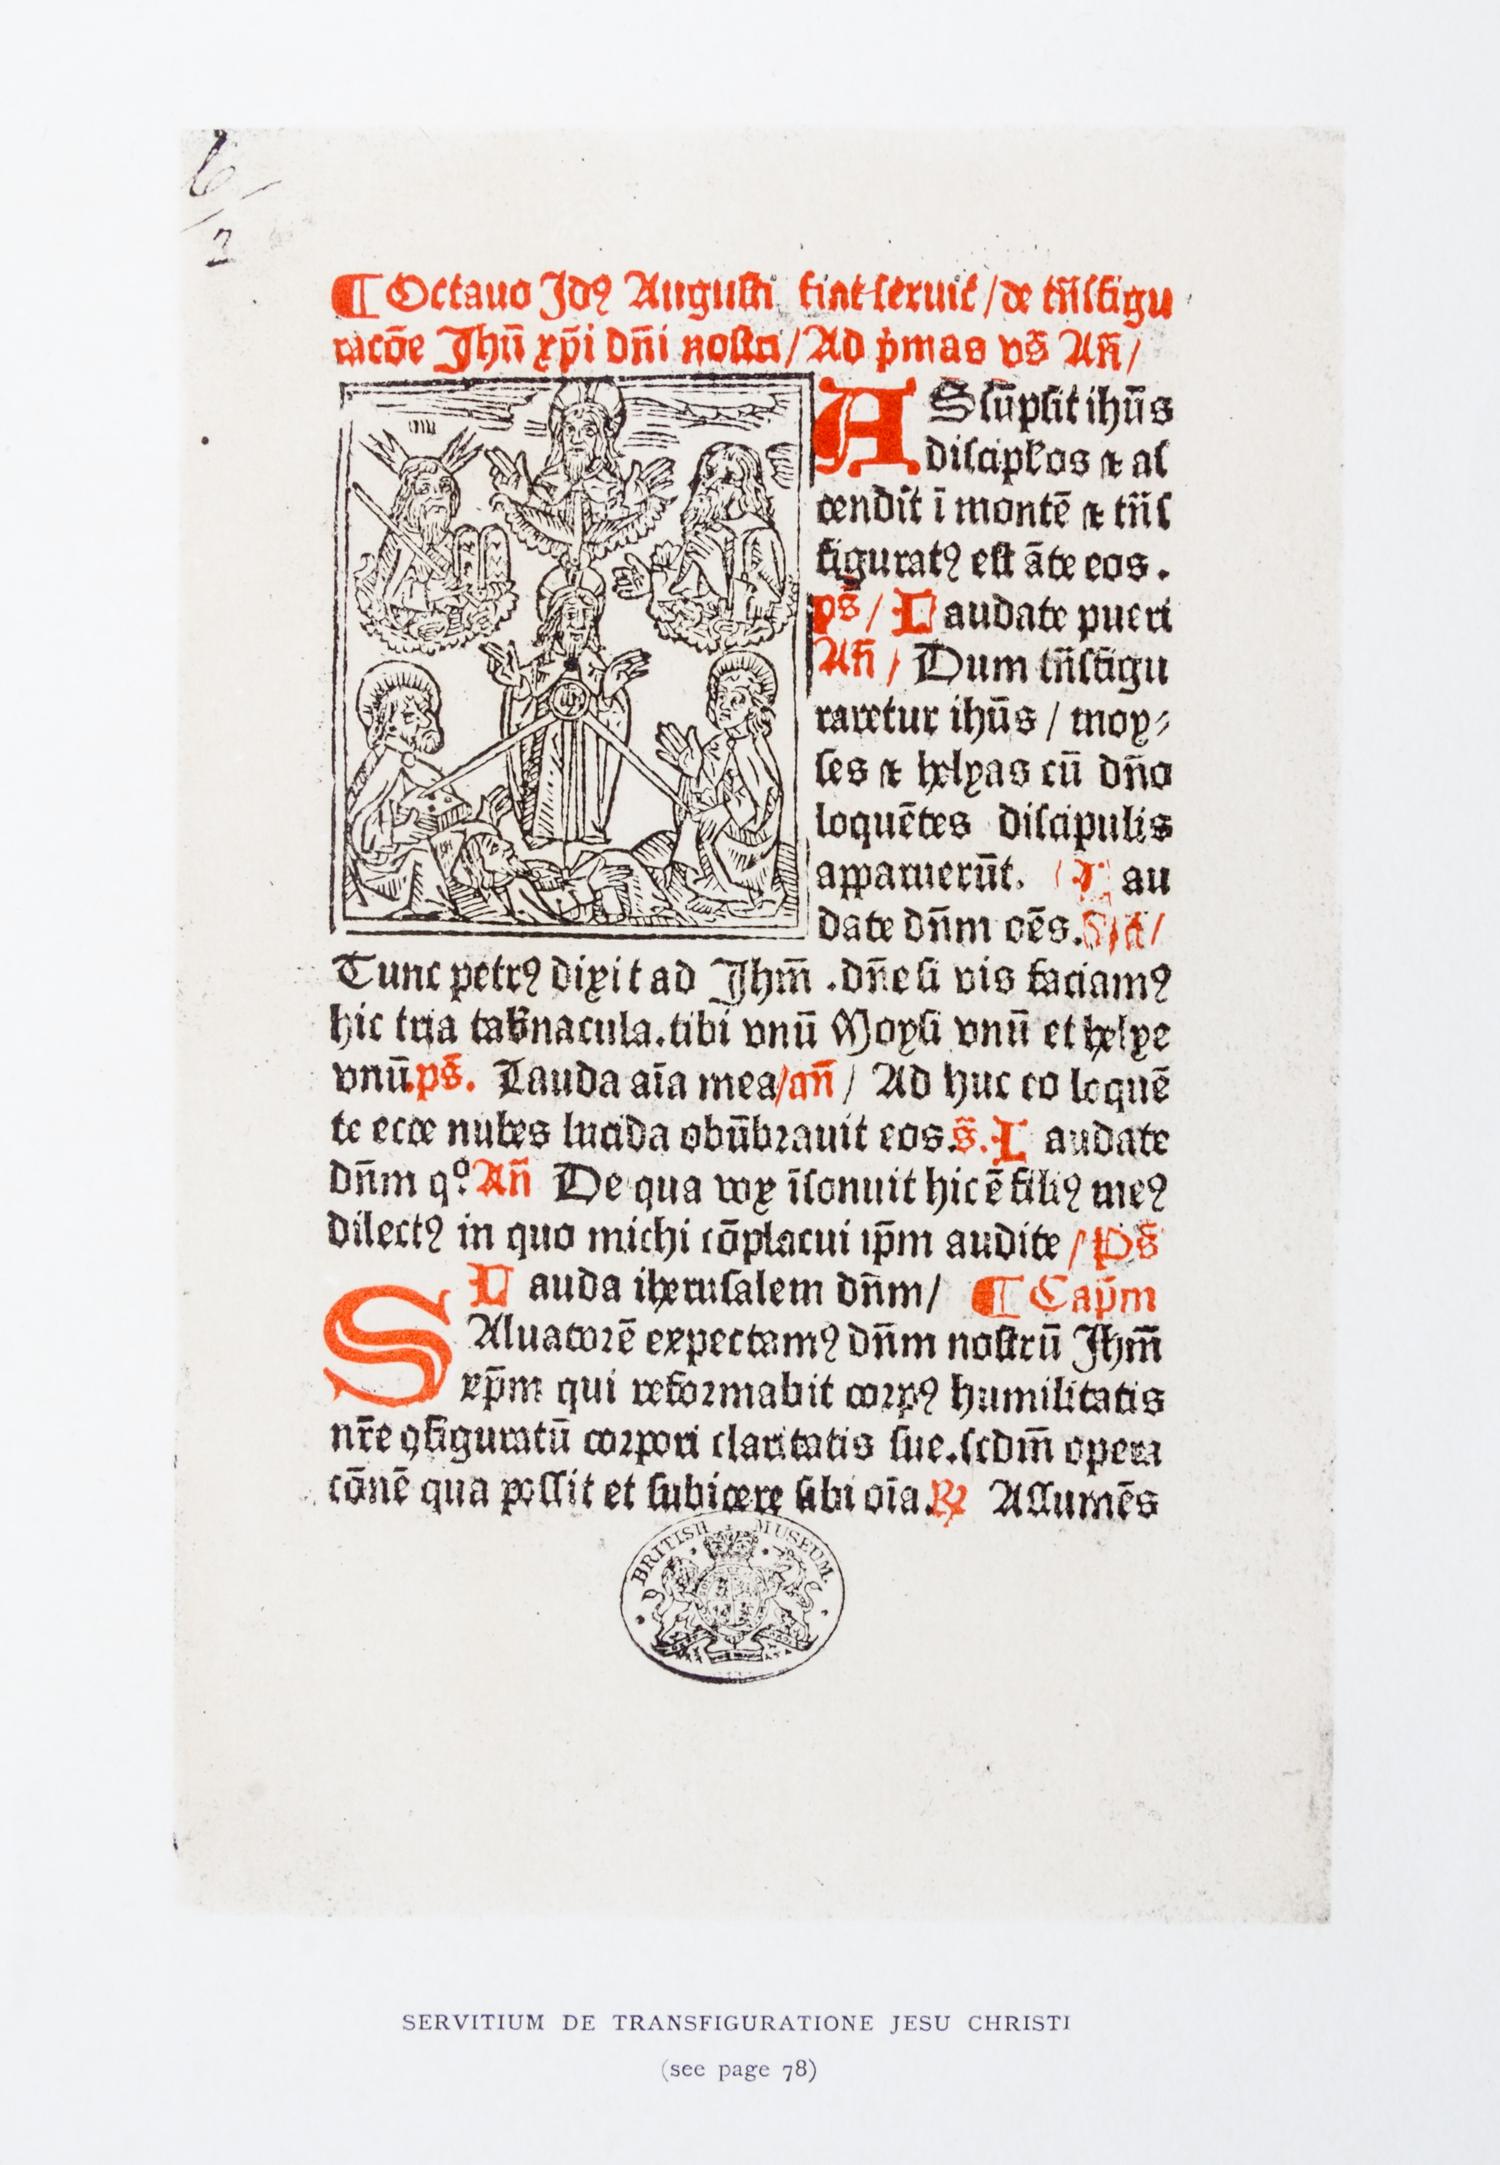 ¶ Octauo Jdꝯ Augusti fiat seruit̄ / de trāsfigu
racōe Jhū xp̄i dn̄i nostri / Ad p̄mas vs̄ An̄ /
ASsūpsit ihūs
discipłos ⁊ as
cendit ī montē ⁊ trn̄s
figuratꝯ est āte eos .
ps̄ / Laudate pueri
An̄ / Dum trn̄sfigu
raretur ihūs / moy⸗
ses ⁊ helyas cū dn̄o
loquētes discipulis
apparuerūt. Lau
date dn̄m oēs.
Tunc petrꝯ dixit ad Jhm̄ . dn̄e si vis faciamꝯ
hic tria tab̄nacula. tibi vnū Moysi vnū et helye
vnū. ps̄. Lauda aīa mea / an̄ / Ad huc eo loquē
te ecce nubes lucida obūbrauit eos. s̄. Laudate
dn̄m qº. An̄ De qua vox īsonuit hic ē filiꝯ meꝯ
dilectꝯ in quo michi cōplacui ip̄m audite / Ps̄
Lauda iherusalem dn̄m / ¶ Cap̄m
SAluatorē expectamꝯ dn̄m nostrū Jhm̄
xp̄m qui reformabit corpꝯ humilitatis
nr̄e ꝯfiguratū corpori claritatis sue. scdm̄ opera
cōnē qua possit et subicere sibi oīa. ℞ Assumēs
BRITISH MUSEUM.
SERVITIUM DE TRANSFIGURATIONE JESU CHRISTI
(see page 78)